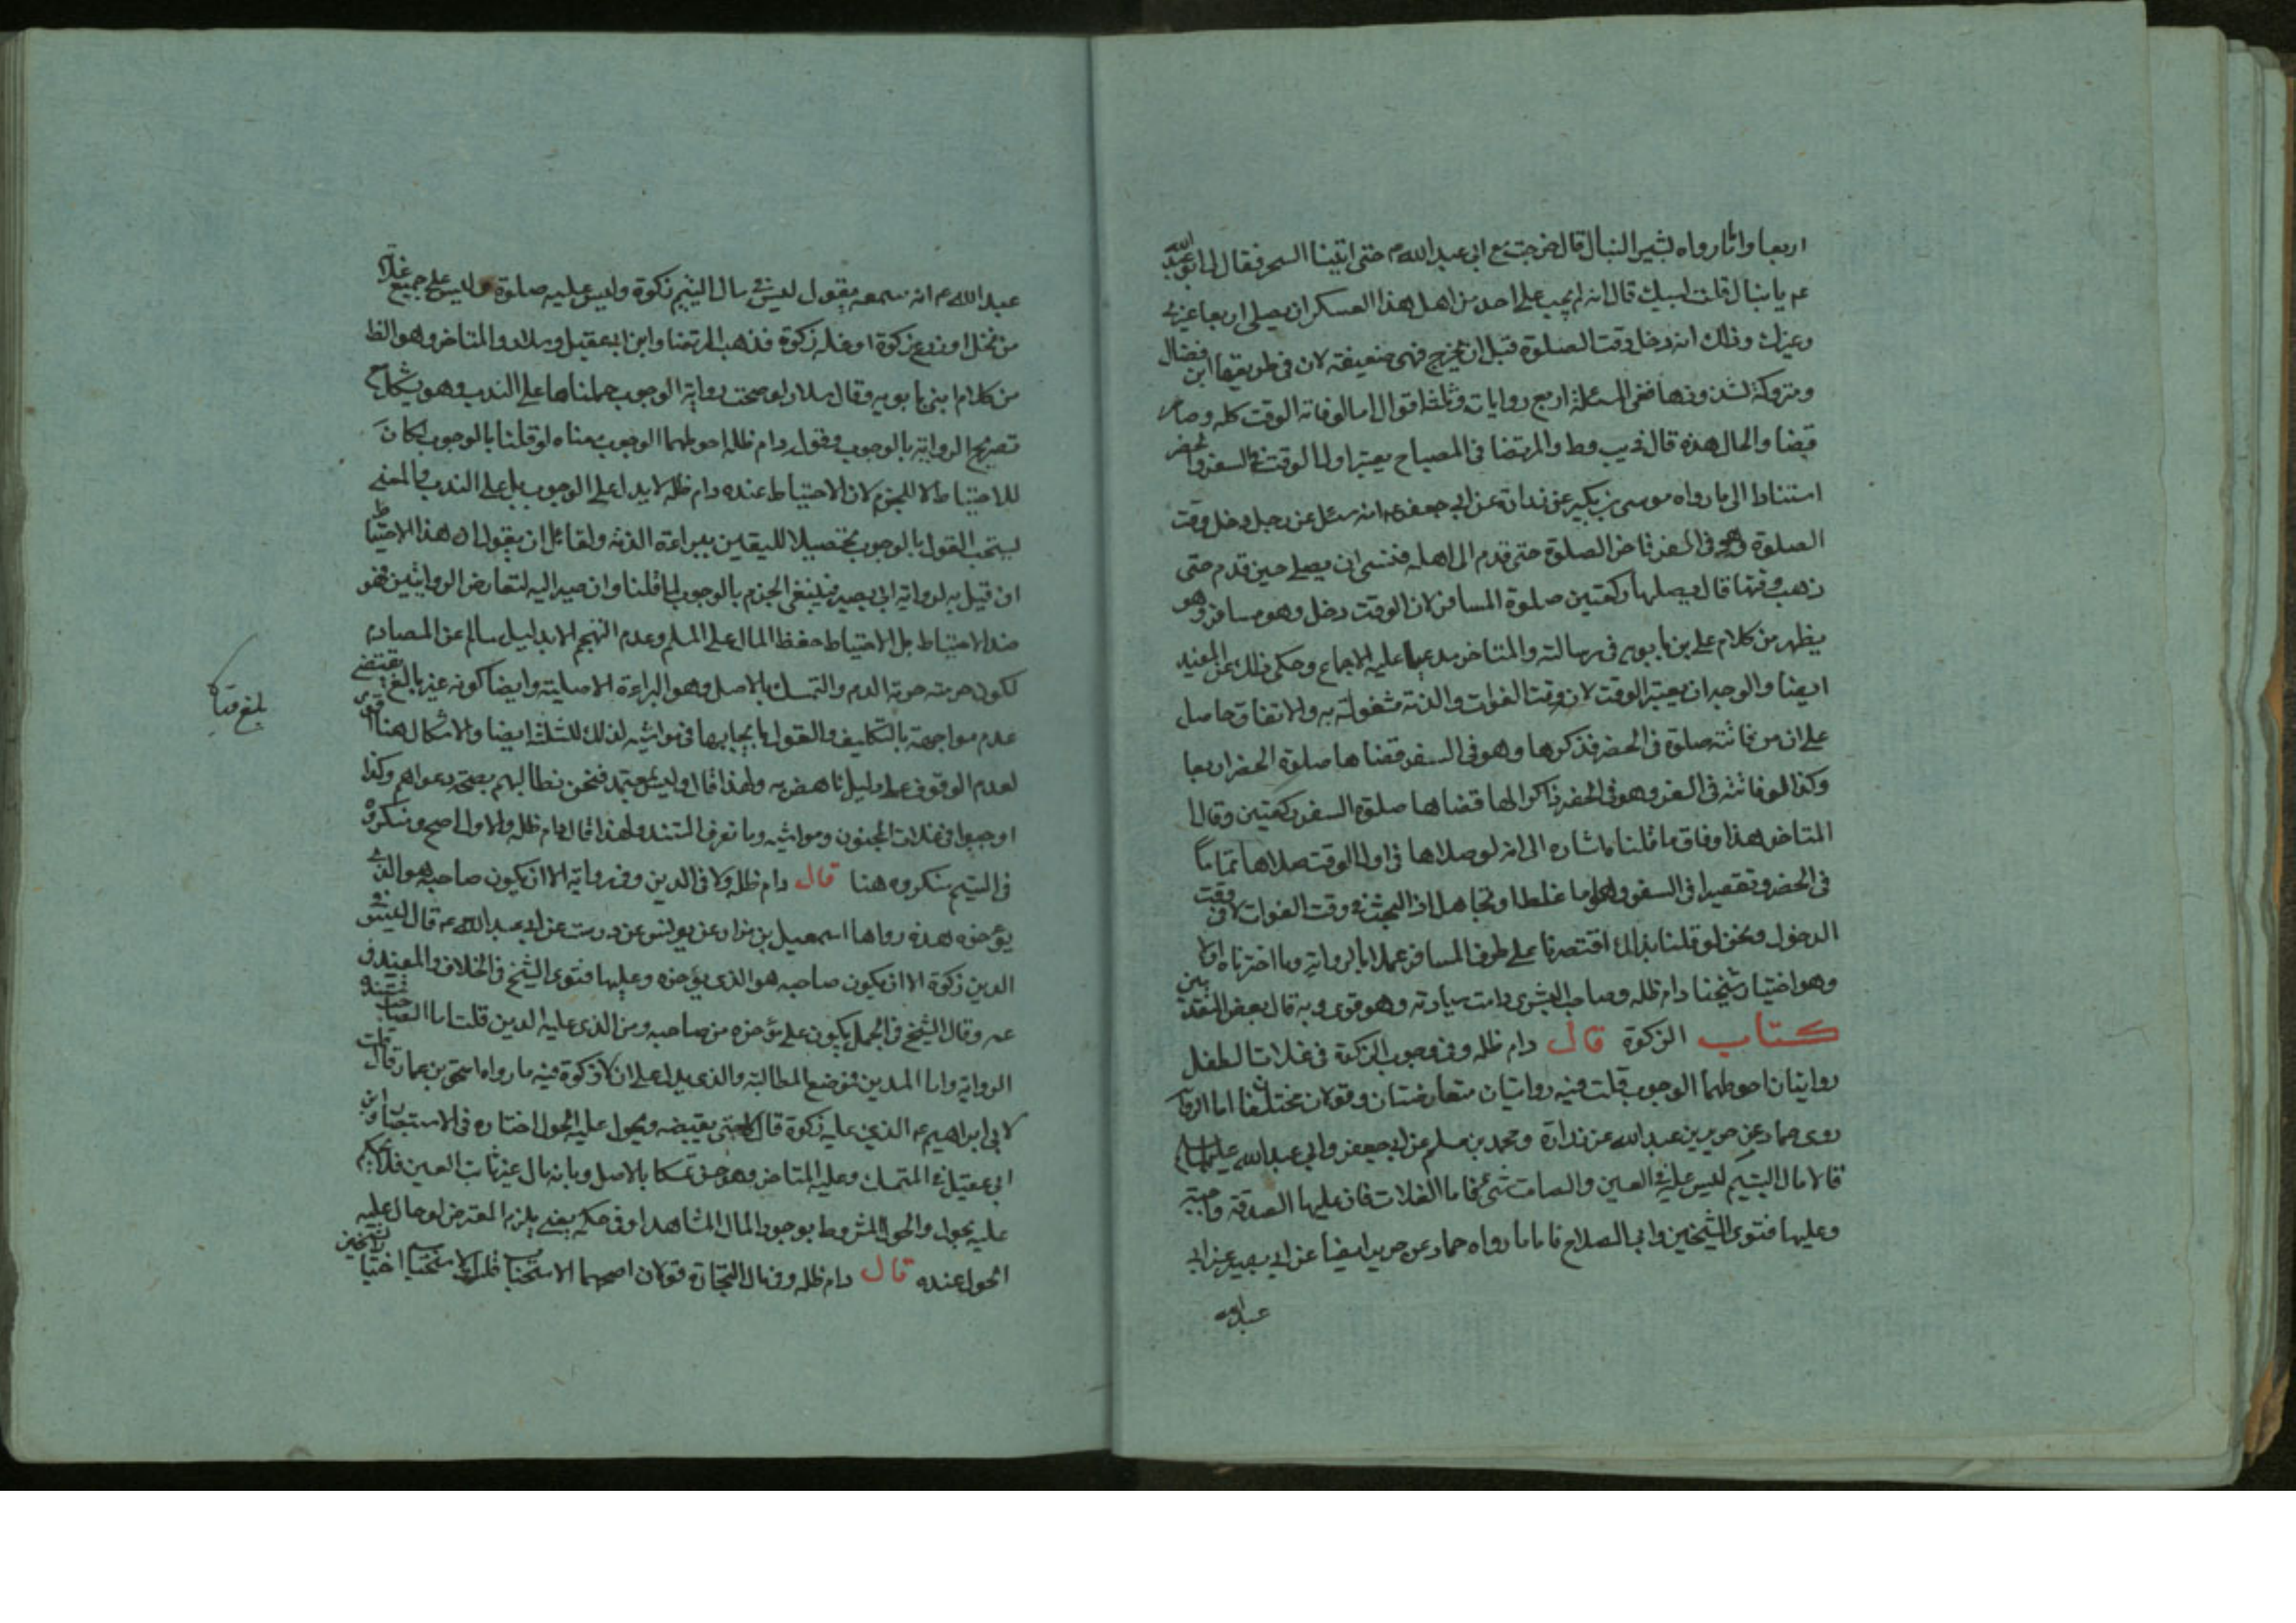 اربعا واما رواه بشير النبال قال خرجت مع ابى عبد الله م حتى اتينا السحر فقال لى ابو عبد الله
عم يا نبال قلت لبيك قال انه لم يجب على احد من اهل هذا العسكر ان يصلى اربعا غيرى
وغيرك وذلك انه دخل وقت الصلوة قبل ان نخرج فهى ضعيفة لان فى طريقها ابن فضال
ومتروكة لشذوذها ففى المسئلة اربع روايات وثلثة اقوال اما لو فاته الوقت كله وصار
قضا والحال هذه قال فى يب وط والمرتضا فى المصباح يعتبر اول الوقت فى السفر والحضر
استنادا الى ما رواه موسى بن بكير عن زرارة عن ابى جعفر عم انه سئل عن رجل دخل وقت
الصلوة وهو فى السفر فاخر الصلوة حتى قدم الى اهله فنسى ان يصلى حين قدم حتى
ذهب وقتها قال يصليها ركعتين صلوة المسافر لان الوقت دخل وهو مسافر وهو
يظهر من كلام على بن بابويه فى رسالته والمتاخر مدعيا عليه الاجماع وحكى ذلك عن المفيد
ايضا والوجه ان يعتبر الوقت لان وقت الفوات والذمة مشغولة به والاتفاق حاصل
على ان من فاتته صلوة فى الحضر فذكرها وهو فى السفر قضاها صلوة الحضر اربعا
وكذا لو فاتته فى السفر وهو فى الحضر ذاكرا لها قضاها صلوة السفر ركعتين وقال
المتاخر هذا وفاق ما قلنا باشاره الى انه لو صلاها فى اول الوقت صلاها تماما
فى الحضر وتقصيرا فى السفر وهو اما غلط او تجاهل اذ البحث فى وقت الفوات لا فى وقت
الدخول ونحن لو قلنا بذلك اقتصرنا على طرف المسافر عملا بالرواية وما اخترناه اولا
وهو اختيار شيخنا دام ظله وصاحب البشرى دامت سيادته وهو قوى وبه قال بعض المتقدمين
كتاب الزكوة قال دام ظله وفى وجوب الزكوة فى غلات الطفل
روايتان احوطهما الوجوب قلت فيه روايتان متعارضتان وقولان مختلفان اما الروايا
روى حماد عن حريز بن عبد الله عن زرارة ومحمد بن مسلم عن ابى جعفر وابى عبد الله عليهما السلام
قالا مال اليتيم ليس عليه فى العين والصامت شئ فاما الغلات فان عليها الصدقة واجبة
وعليها فتوى الشيخين وابى الصلاح فاما ما رواه حماد عن حريز ايضا عن ابى بصير عن ابى
عبد الله
عبد الله عم انه سمعه يقول ليس فى مال اليتيم زكوة وليس عليه صلوة وليس على جميع غلاته
من نخل او زرع زكوة او غلة زكوة فذهب المرتضا وابن ابى عقيل وسلار والمتاخر وهو الظ
من كلام ابنى بابويه وقال سلار لو صحت رواية الوجوب حملناها على الندب وهو يشكل مع
تصريح الرواية بالوجوب وقول دام ظله احوطهما الوجوب معناه لو قلنا بالوجوب لكان
للاحتياط لا للجزم لان الاحتياط عنده دام ظله لا يدل على الوجوب بل على الندب والمعنى
يستحب القول بالوجوب تحصيلا لليقين ببراءة الذمة ولقائل ان يقول ان هذا الاحتياط
ان قيل به لرواية ابى بصير فينبغى الجزم بالوجوب لما قلنا وان صير اليه لتعارض الروايتين فهو
ضد الاحتياط بل الاحتياط حفظ المال على المسلم وعدم التهجم الا بدليل سالم عن المصادم
لكون حرمته حرمة الدم والتمسك بالاصل وهو البراءة الاصلية وايضا كونه غير بالغ يقتضى
عدم مواجهته بالتكليف والقول بايجابها فى مواشيه لذلك للثلثة ايضا والاشكال هنا اقوى
لعدم الوقوف على دليل ناهض به ولهذا قال وليس بمعتمد فنحن نطالبهم بصحة دعواهم وكذا
اوجبوا فى غلات المجنون ومواشيه وما نعرف المستند ولهذا قال دام ظله والاول اصح ومن ذكره
فى اليتيم من ذكره هنا قال دام ظله ولا فى الدين وفى رواية الا ان يكون صاحبه هو الذى
يؤخره هذه رواها اسمعيل بن مرار عن يونس عن درست عن ابى عبد الله عم قال ليس فى
الدين زكوة الا ان يكون صاحبه هو الذى يؤخره وعليها فتوى الشيخ فى الخلاف والمفيد فى
عه وقال الشيخ فى الجمل يكون على مؤخره من صاحبه ومن الذى عليه الدين قلت اما الصاحب فمستنده
الرواية واما المدين فوضع المطالبة والذى يدل على ان لا زكوة فيه ما رواه اسحق بن عمار قال قلت
لابى ابراهيم عم الدين عليه زكوة قال لا حتى يقبضه ويحول عليه الحول اختاره فى الاستبصار وابن
ابى عقيل فى المتمسك وعليه المتاخر وهو حق تمسكا بالاصل وبانه مال غير ثابت العين فلا يحكم
عليه بحول والحول المشروط بوجود المال المشاهد او فى حكمه يعنى يلزم المقترض لو حال عليه
الحول عنده قال دام ظله وفى مال التجارة قولان اصحهما الاستحباب قلت الاستحباب اختيار الشيخين
بلغ قبالا